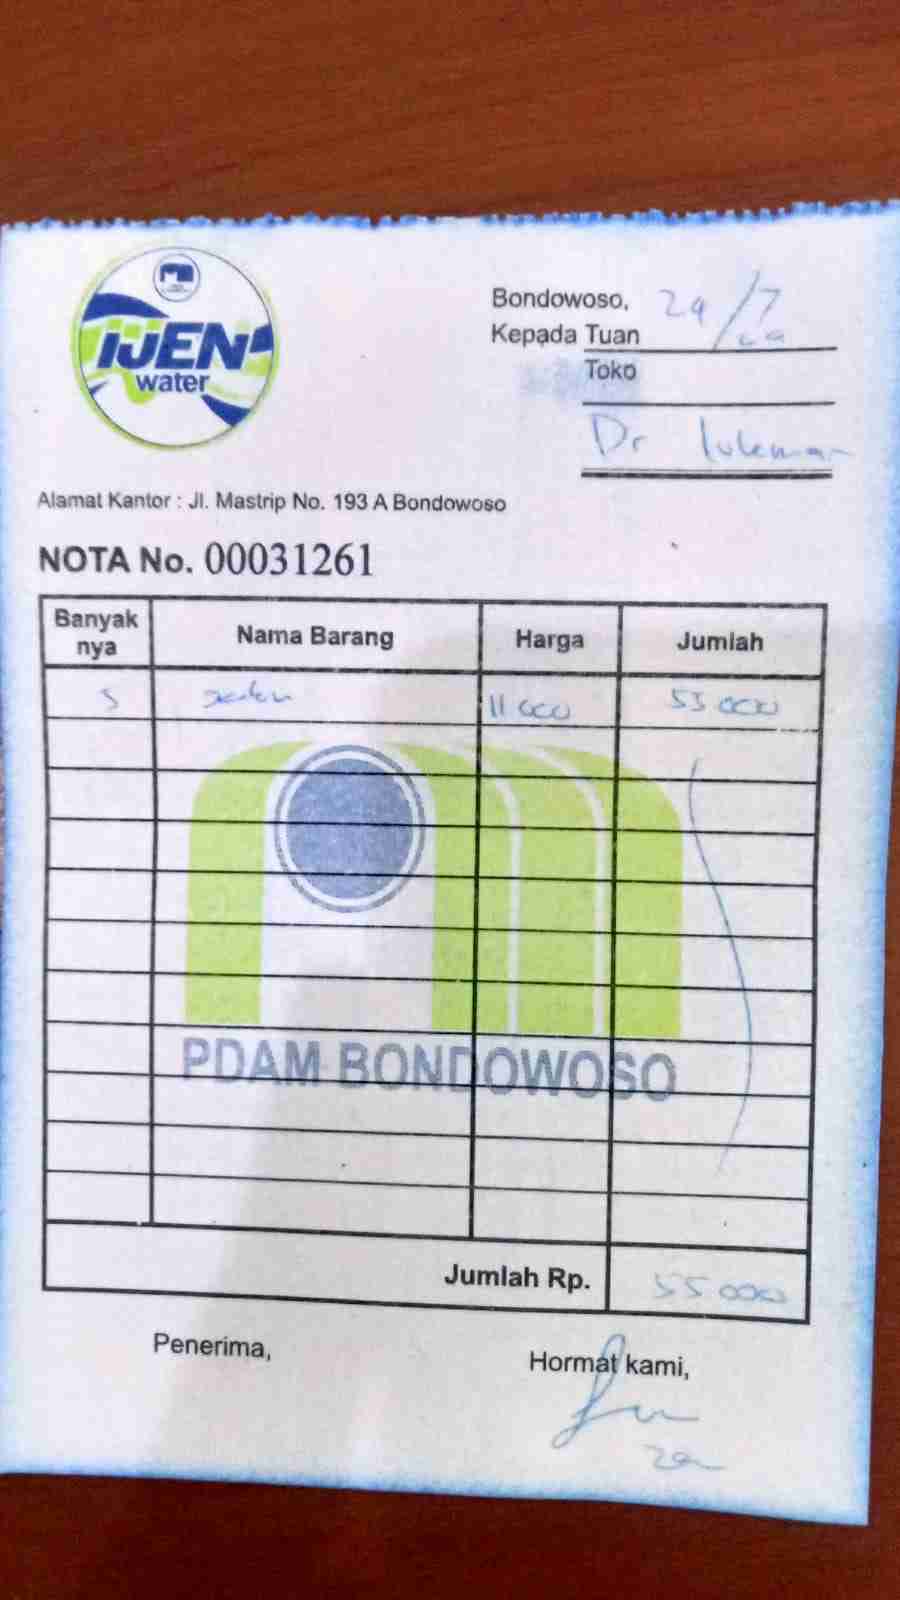 IJEN
water
Bondowoso, 29/7
Kepada Tuan
Toko
Dr lukman
Alamat Kantor : Jl. Mastrip No. 193 A Bondowoso
NOTA No. 00031261
Banyak nya Nama Barang Harga Jumlah
5 11 000 55 000
PDAM BONDOWOSO
Jumlah Rp. 55 000
Penerima, Hormat kami,